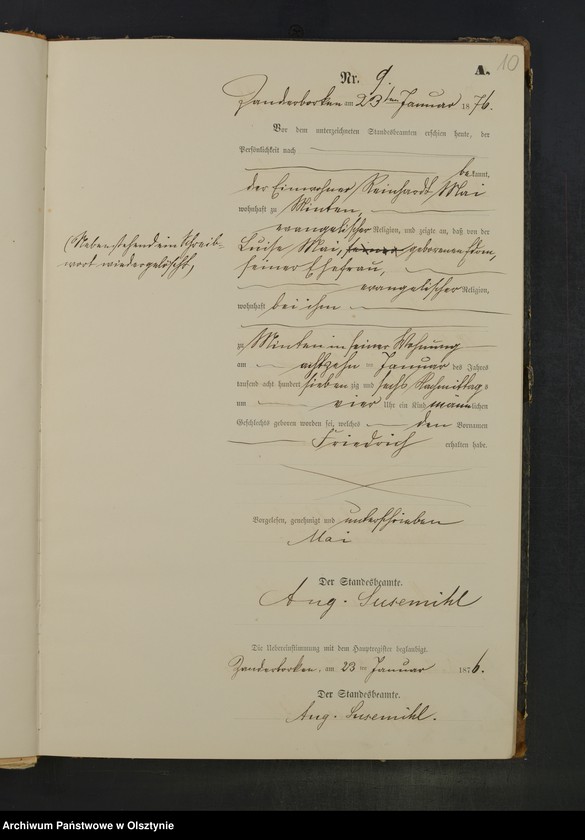 A.
10
Nr. 9.
Zanderborken am 23ten Januar 1876.
Vor dem unterzeichneten Standesbeamten erschien heute, der
Persönlichkeit nach
bekannt,
der Einwohner Reinhardt Mai
wohnhaft zu Minten,
evangelischer Religion, und zeigte an, daß von der
Luise Mai, geborenen
seiner Ehefrau,
evangelischer Religion,
wohnhaft bei ihm
zu Minten in seiner Wohnung
am achtzehn ten Januar des Jahres
tausend acht hundert siebenzig und sechs Nachmittags
um vier Uhr ein Kind männlichen
Geschlechts geboren worden sei, welches den Vornamen
Friedrich erhalten habe.
(Nebenstehend ein Schreib-
wort wieder gelöscht,
Vorgelesen, genehmigt und unterschrieben
Mai
Der Standesbeamte.
Aug. Susemihl
Die Uebereinstimmung mit dem Hauptregister beglaubigt.
Zanderborken. am 23 ten Januar 1876.
Der Standesbeamte.
Aug. Susemihl.
Archiwum Państwowe w Olsztynie